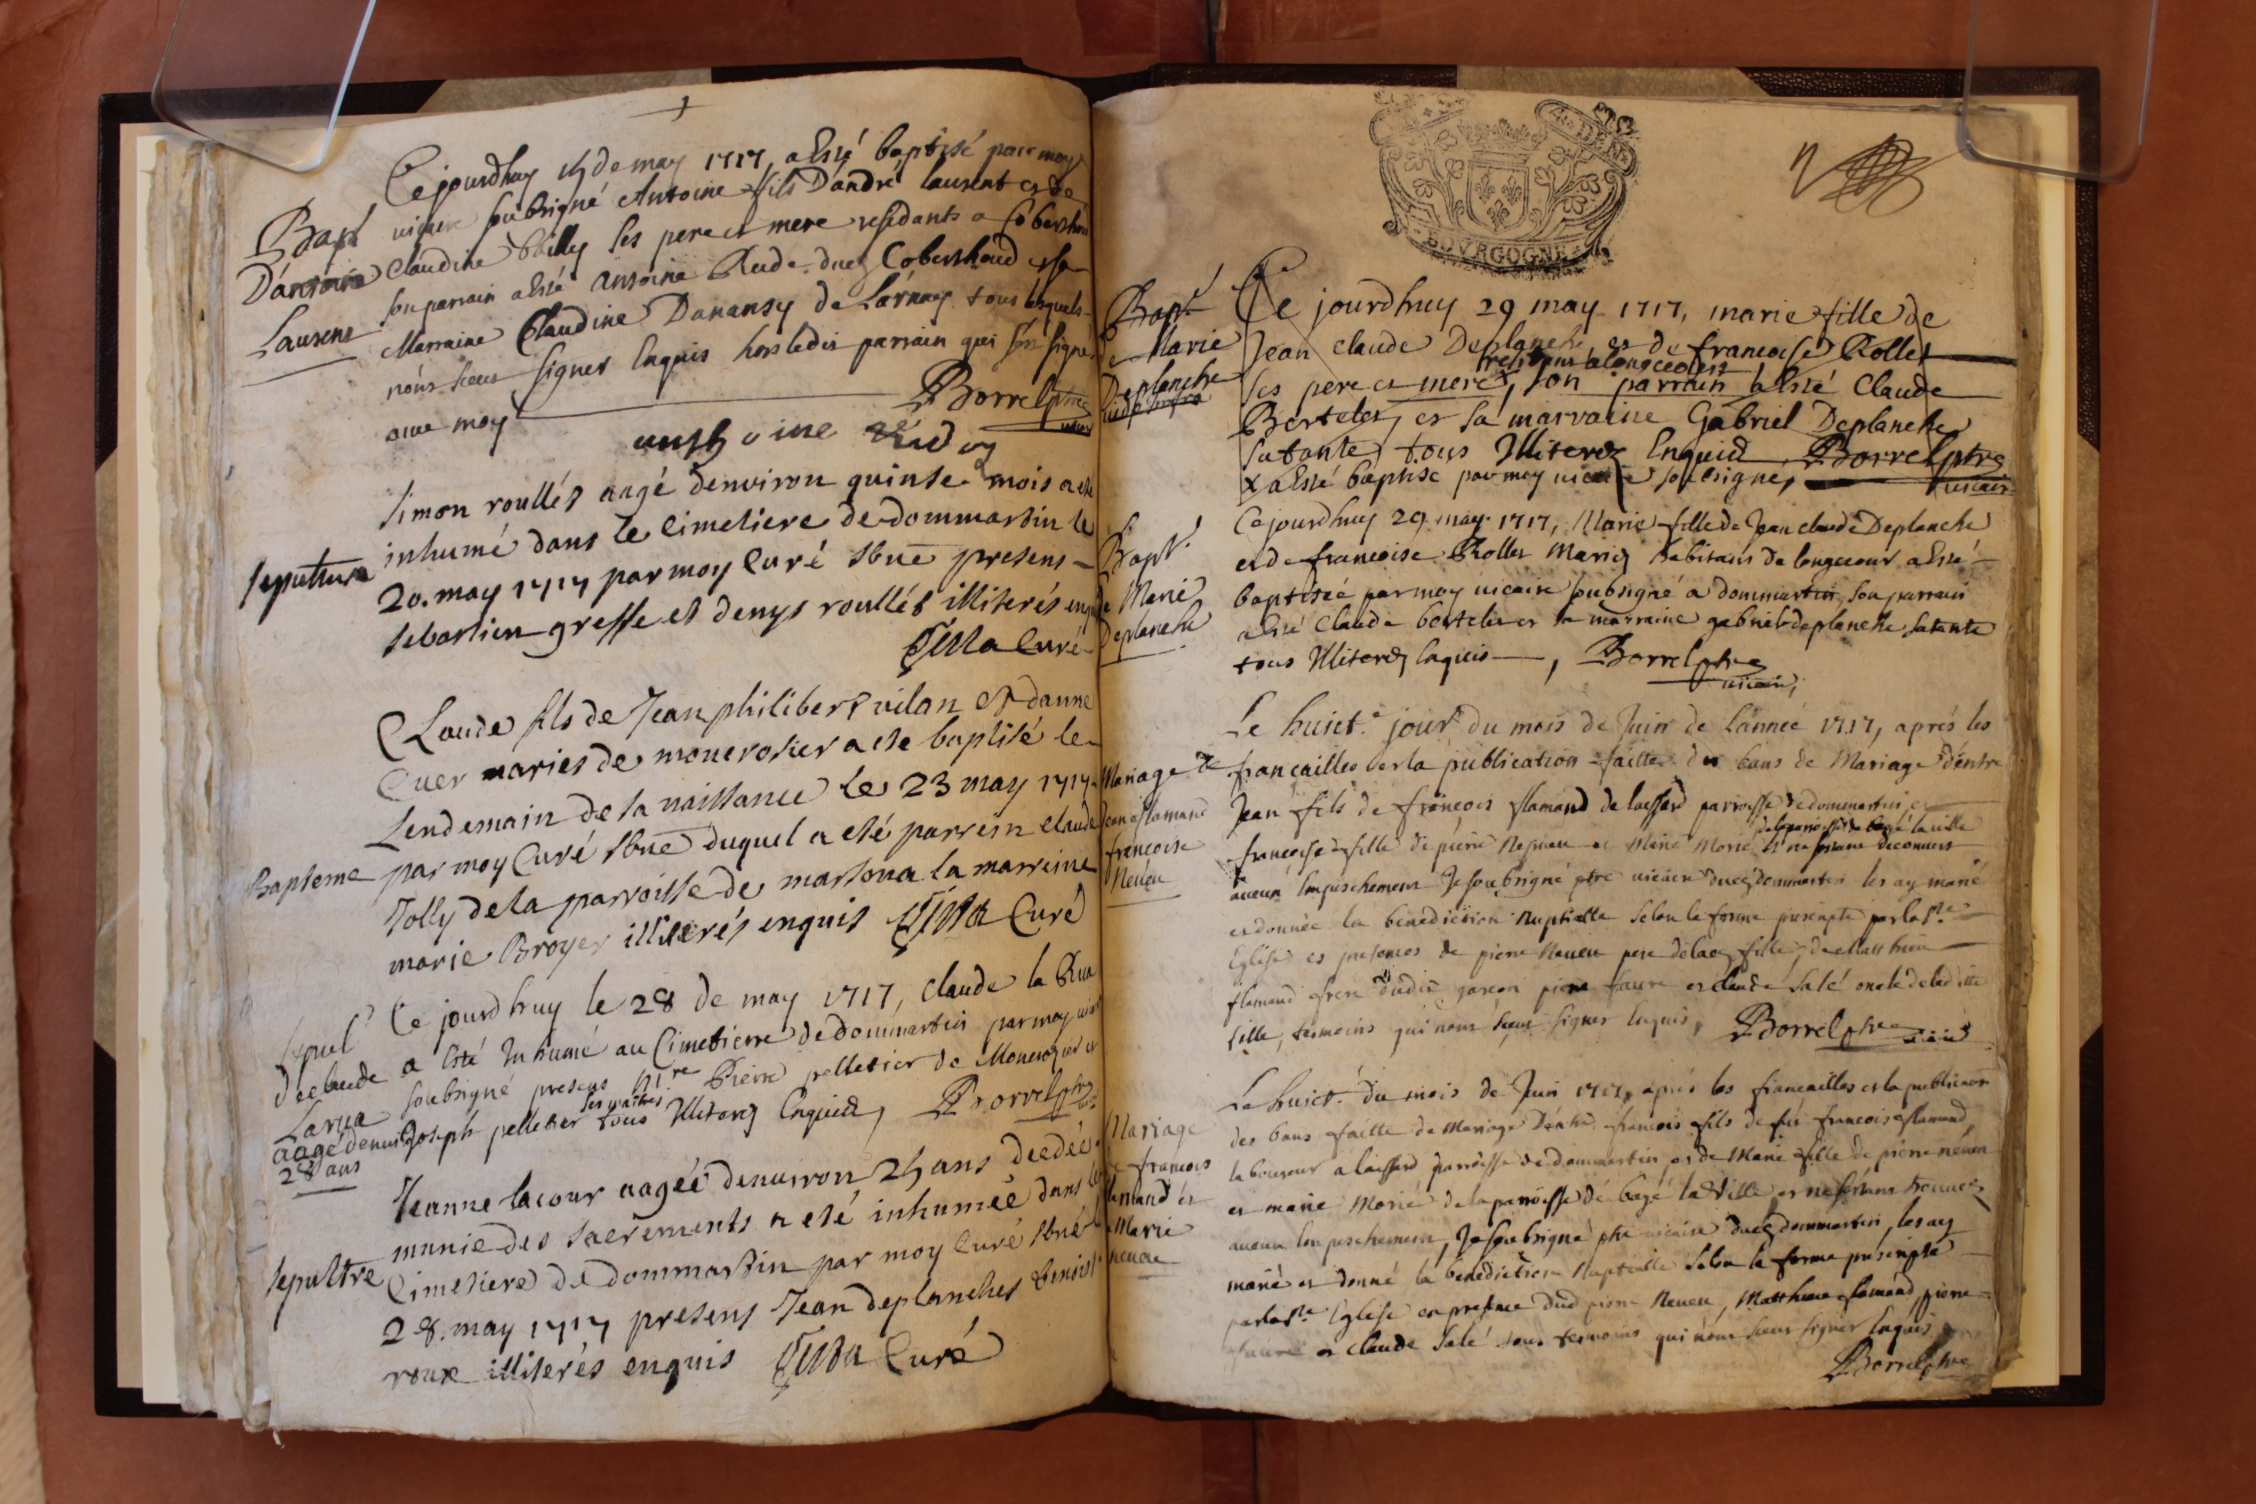 Ce jourdhuy 15 de may 1717, a Esté baptisé par moy
Bapt vicaire soubsigné Antoine fils Dandré laurent et de
Dantoine Claudine Bailly ses pere et mere residants a
Laurent son parrain a Esté Antoine Rude dudt Coberthoud et sa
Marraine Claudine Danansy de Larnay tous lesquels
nont sceus signer Enquis hors ledit parrain qui sest signé
avec moy Borrel ptre
vicair
anthoine
simon roullét aagé denviron quinse mois a esté
sepulture inhumé dans le cimetiere de dommartin le
20. may 1717 par moy Curé sbné presens
sebastien greffe et denys roullét illiterés
Curé
Claude fils de Jean philibert vilan et danne
Cuer maries de moncrosier a ete baptisé le
Lendemain de sa naissance le 23 may 1717
Bapteme par moy Curé sbné duquel a eté parrein claude
Jolly de la parroisse de marsona la marreine
marie Broyer illiterés enquis Curé
Ce jourdhuy le 28 de may 1717, claude la Rua
Sepul
declaude a Esté Inhumé au Cimetierre de dommartin par moy
Larua soubsigné presens Pierre pelletier de Moncrosier et
aagé denviron Joseph pelletier ses maitres tous Illiterez Enquis, Borrel ptre
28 ans
Jeanne lacour aagée denviron 25 ans decedée
munie des sacrements a eté inhumée dans le
sepultre Cimetiere de dommartin par moy Curé sbné le
28. may 1717 presens Jean deplanches benoist
roux illiterés enquis Curé
BOURGOGNE
Bapt Ce jourdhuy 29 may 1717, marie fille de
de Marie Jean Claude Deplanche et de francoise Rollet
Deplanche ses pere et mere x, son parrain a Esté Claude
Bertelet, et sa marraine Gabriel Deplanche
sa tante tous Illiterez Enquis Borrel ptre
x a Esté baptisé par moy vicaire soubsigné, vicair
Ce jourdhuy 29 may 1717, Marie fille de Jean claude Deplanche
Bapt et de francoise Rollet Mariez habitans de longecour a Esté
de Marie baptisée par moy vicaire soubsigné a dommartin, son parrain
Deplanche a Esté Claude bertelet et sa marraine gabriel deplanche sa tante
tous Illiterez Enquis, Borrel ptre
vicair
Le huict.e jour du mois de Juin de Lannée 1717, aprés les
Mariage de francailles et la publication faitte des bans de Mariage Dentre
Jean flamand Jean fils de françois flamand de laissard parroisse de dommartin et
de la parroisse de bagé la ville
francoise francoise fille de pierre Neveu et Marie Morié et ne sestant decouvert
Neveu aucun Empeschement Je soubsigné ptre vicaire dudt dommartin les ay marié
et donnée la benediction Nuptialle selon la forme prescripte par la Ste
Eglise es presences de pierre Neveu pere de lad. fille, de Matthieu
flamand frere dudit garcon pierre faure et claude salé oncle de ladite
fille, tesmoins qui nont sceus signer Enquis, Borrel ptre vicair
Le huict. du mois de Juin 1717, aprés les fiancailles et la publication
Mariage des bans faitte de Mariage Dentre francois fils de feu francois flamand
de francois laboureur a laissard parroisse de dommartin et de Marie fille de pierre neveu
flamand et et marie Morié de la parroisse de bagé la Ville et ne sestans trouvez
Marie aucun Empeschement, Je soubsigné ptre vicaire dudt dommartin, les ay
neveu marié et donné la benediction Nuptialle selon la forme prescripte
par la Ste Eglise en presence dud pierre Neveu, Matthieu flamand, pierre
faure et claude salé tous tesmoins qui nont sceus signer Enquis
Borrel ptre